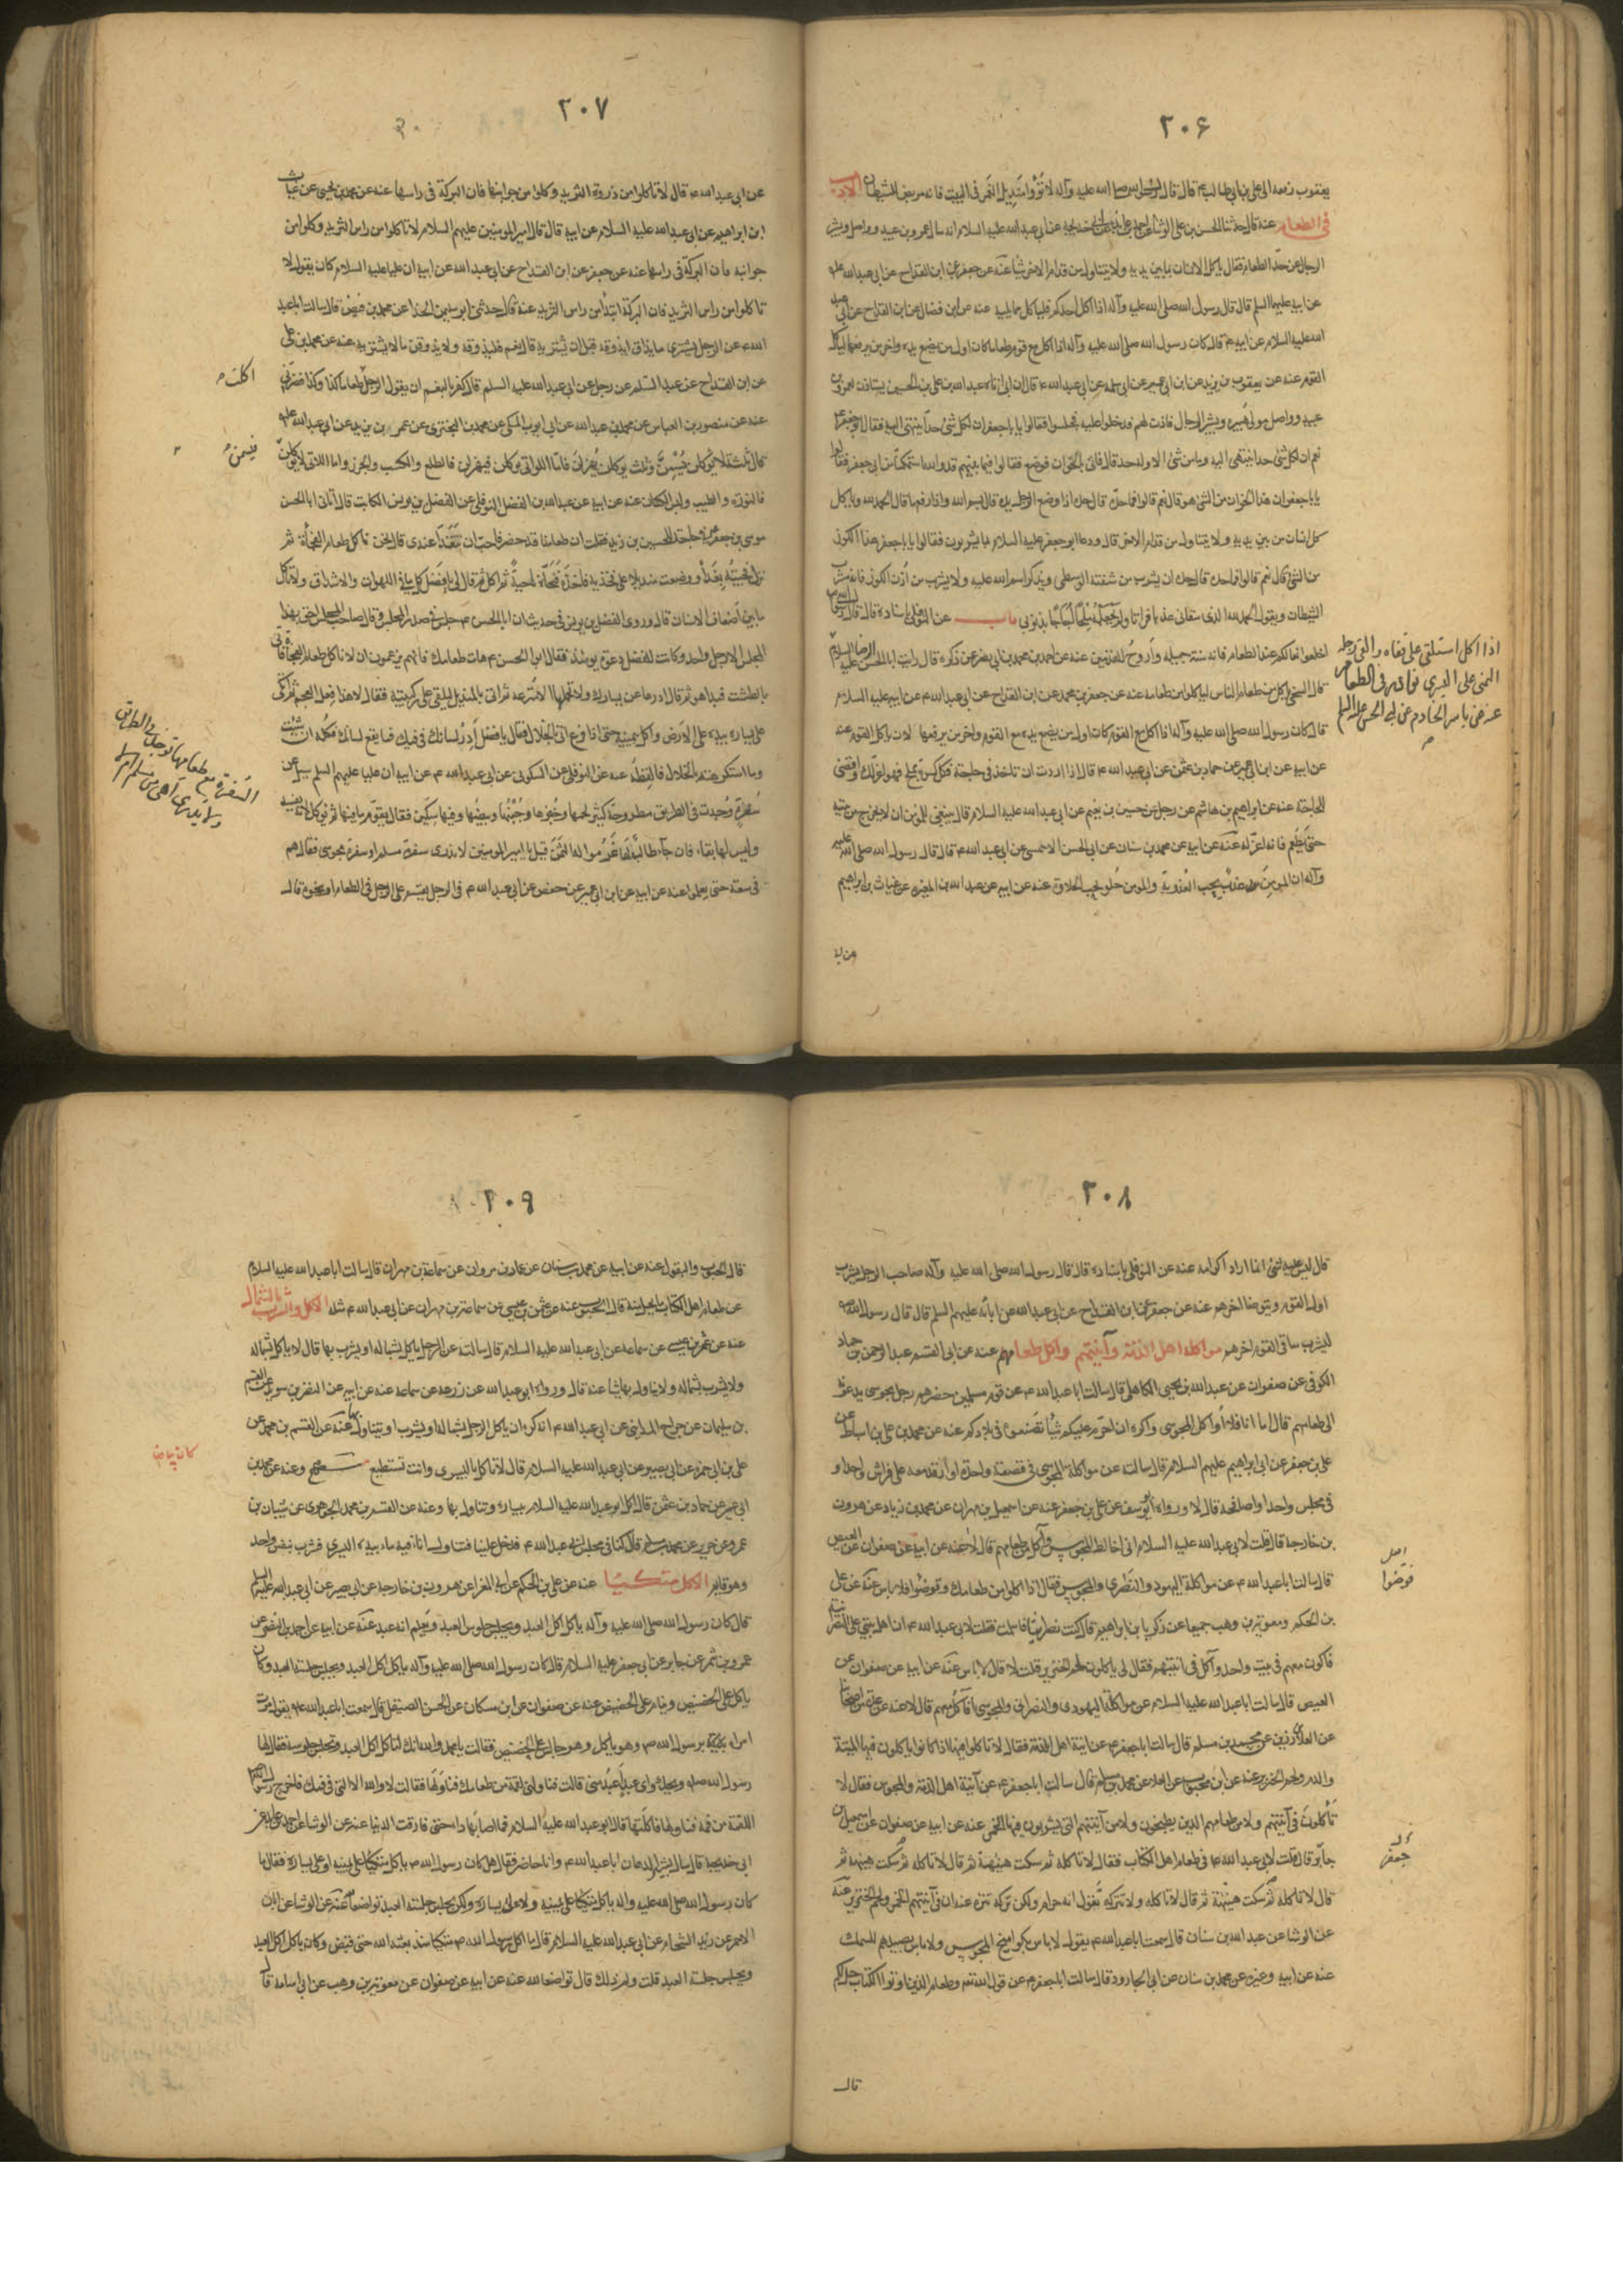 ٢٠۶
يعقوب رفعه الى علي بن ابي طالب ع قال قال رسول الله صلى الله عليه وآله لا تؤووا منديل الغمر في البيت فانه مربض الشيطان الاداب
في الطعام عنه قال حدثنا الحسن بن علي الوشا عن احمد بن عايذ عن ابي خديجة عن ابي عبدالله عليه السلام انه سال عمرو بن عبيد وواصل وبشير
الرحال عن حد الطعام فقال ياكل الانسان مما بين يديه ولا يتناول من قدام الاخر شيئا عنه عن جعفر عن ابن القداح عن ابي عبدالله عليه
عن ابيه عليهما السلم قال قال رسول الله صلى الله عليه وآله اذا اكل احدكم فلياكل مما يليه عنه عن ابن فضال عن ابن القداح عن ابي عبد
الله عليه السلام عن ابيه ع قال كان رسول الله صلى الله عليه وآله اذا اكل مع قوم طعاما كان اول من يضع يده واخر من يرفعها لياكل
القوم عنه عن يعقوب بن يزيد عن ابن ابي عمير عن ابي سلمه عن ابي عبدالله ع قال ان ابي اتاه عبدالله بن علي بن الحسين يستاذن لعمرو بن
عبيد وواصل مولى هبيره وبشير الرحال فاذن لهم فدخلوا عليه فجلسوا فقالوا يابا جعفر ان لكل شئ حدا ينتهي اليه فقال ابو جعفر ع
نعم ان لكل شئ حدا ينتهى اليه وما من شئ الا وله حد قال فاتى بالخوان فوضع فقالوا فيما بينهم قد والله استمكنا من ابي جعفر فقالوا
يابا جعفر ان هذا الخوان من الشئ هو قال نعم قالوا فما حده قال حده اذا وضع الرجل يده قال بسم الله واذا رفعها قال الحمد لله وياكل
كل انسان من بين يديه ولا يتناول من قدام الاخر قال ودعا ابو جعفر عليه السلام بما يشربون فقالوا يابا جعفر هذا الكوز
من الشئ قال نعم قالوا فما حده قال حده ان يشرب من شفته الوسطى ويذكر اسم الله عليه ولا يشرب من اذن الكوز فانه مشرب
الشيطان ويقول الحمد لله الذي سقاني عذبا فراتا ولم يجعله ملحا اجاجا بذنوبي باب عنه عن النوفلي باسناده قال قال رسول الله
اخلعوا نعالكم عند الطعام فانه سنة جميله واروح للقدمين عنه عن احمد بن محمد بن ابي نصر عن ذكره قال رايت ابا الحسن الرضا عليه السلام
قال السخي ياكل من طعام الناس لياكلوا من طعامه عنه عن جعفر بن محمد عن ابن القداح عن ابي عبدالله ع عن ابيه عليه السلام
قال كان رسول الله صلى الله عليه وآله اذا اكل مع القوم كان اول من يضع يده مع القوم واخر من يرفعها لان ياكل القوم عنه
عن ابيه عن ابن ابي عمير عن حماد بن عثمن عن ابي عبدالله ع قال اذا اردت ان تاخذ في حاجة فكل كسرة بملح فهو اعز لك واقضى
للحاجة عنه عن ابراهيم بن هاشم عن رجل عن حسين بن نعيم عن ابي عبدالله عليه السلام قال ينبغي للمومن ان لا يخرج من بيته
حتى يطعم فانه اعز له عنه عن ابيه عن محمد بن سنان عن ابي الحسن الاحمسي عن ابي عبدالله ع قال قال رسول الله صلى الله عليه
وآله ان المومن عذب يحب العذوبة والمومن حلو يحب الحلاوة عنه عن ابيه عن عبدالله بن المغيره عن غياث بن ابراهيم
اذا اكل استلقى على قفاه والقى رجله
اليمنى على اليسرى نوادر في الطعام
عنه عن ياسر الخادم عن ابي الحسن عليه السلم
عن ابي
٢٠٧
عن ابي عبدالله ع قال لا تاكلوا من ذروة الثريد وكلوا من جوانبها فان البركة في راسها عنه عن محمد بن يحيى عن غياث
ابن ابراهيم عن ابي عبدالله عليه السلام عن ابيه قال قال امير المومنين عليهم السلام لا تاكلوا من راس الثريد وكلوا من
جوانبه فان البركة في راسها عنه عن جعفر عن ابن القداح عن ابي عبدالله عن ابيه ان عليا عليه السلام كان يقول لا
تاكلوا من راس الثريد فان البركة ابتدأ من راس الثريد عنه قال حدثني ابو سليمن الحذا عن محمد بن فيض قال سالت ابا عبد
الله ع عن الرجل يشترى ما يذاق ايذوقه قبل ان يشتريه قال نعم فليذوقه ولا يذوقن ما لا يشتريه عنه عن محمد بن علي
عن ابن القداح عن عبد السلم عن رجل عن ابي عبدالله عليه السلم قال كفر بالنعم ان يقول الرجل طعاما كذا وكذا فضرني
عنه عن منصور بن العباس عن محمد بن عبدالله عن ابي ايوب المكي عن محمد بن البختري عن عمر بن يزيد عن ابي عبدالله عليه
قال ثلثة لا يؤكلن يسمن وثلث يوكلن يهزلن فاما اللواتي يوكلن فيهزلن فالطلع والكسب والجوز واما اللاتي لا يوكلن
فالنوره والطيب ولبس الكتان عنه عن ابيه عن عبدالله بن الفضل النوفلي عن الفضل بن يونس الكاتب قال اتاني ابا الحسن
موسى بن جعفر ع في حاجة للحسين بن زيد فقلت ان طعامنا قد حضر فاحب ان تتغدا عندي قال نحن ناكل طعام الفجأة ثم
نزل فجيته بغدا ووضعت منديلا على فخذيه فاخذه فنحاه ناحية ثم اكل ثم قال لي يا فضل كل مما في اللهوات والاشداق ولا تاكل
ما بين اضعاف الاسنان قال وروى الفضل بن يونس في حديث ان ابا الحسن ع جلس في صدر المجلس وقال صاحب المجلس احق بهذا
المجلس الا رجل واحد وكانت لفضل دعوة يومئذ فقال ابو الحسن ع هات طعامك فانهم يزعمون ان لا ناكل طعام الفجأة فاتى
بالطشت فبدا هو ثم قال ادرها عن يسارك ولا تحملها الا مترعه ثم اتى بالمنديل ليلقى على ركبتيه فقال لا هذا فعل العجم ثم اتكى
على يساره بيده على الارض واكل بيمينه حتى اذا فرغ اتى بالخلال فقال يا فضل ادر لسانك في فيك فما يقع لسانك فكله ان شئت
وما استكرهته بالخلال فالفظه عنه عن النوفلي عن السكوني عن ابي عبدالله ع عن ابيه ان عليا عليهم السلم سئل عن
سفرة وجدت في الطريق مطروحة كثير لحمها وخبزها وجبنها وبيضها وفيها سكين فقال يقوم ما فيها ثم يوكل لانه يفسد
وليس لها بقاء فان جاء طالب لها غرموا له الثمن قيل يا امير المومنين لا ندري سفرة مسلم او سفره مجوسي فقال هم
في سعة حتى يعلموا عنه عن ابيه عن ابن ابي عمير عن حفص عن ابي عبدالله ع في الرجل يقسم على الرجل في الطعام او نحوه قال
اكلت
فيسمن
٢٠٨
قال ليس عليه شئ انما اراد اكرامه عنه عن النوفلي باسناده قال قال رسول الله صلى الله عليه وآله صاحب الرجل يشرب
اول القوم ويتوضا اخرهم عنه عن جعفر عن ابن القداح عن ابي عبدالله عن ابائه عليهم السلم قال قال رسول الله ص
ليشرب ساقي القوم اخرهم مواكلة اهل الذمة وآنيتهم واكل طعامهم عنه عن ابي القسم عبد الرحمن بن حماد
الكوفي عن صفوان عن عبدالله بن يحيى الكاهلي قال سالت ابا عبدالله ع عن قوم مسلمين حضرهم رجل مجوسي يدعونه
الى طعامهم قال اما انا فلا أواكل المجوسي واكره ان احرم عليكم شيئا تصنعونه في بلادكم عنه عن محمد بن علي بن اسباط عن
علي بن جعفر عن ابي ابراهيم عليهم السلام قال سالت عن مواكلة المجوسي في قصعة واحدة او ارقد معه على فراش واحد او
في مجلس واحد او اصافحه قال لا ورواه ابو يوسف عن علي بن جعفر عنه عن اسمعيل بن مهران عن محمد بن زياد عن هرون
بن خارجة قال قلت لابي عبدالله عليه السلام اني اخالط المجوس وآكل من طعامهم قال لا عنه عن ابيه عن صفوان عن العيص
قال سالت ابا عبدالله ع عن مواكلة اليهود والنصرى والمجوس فقال اذا اكلوا من طعامك وتوضوا فلا باس عنه عن علي
بن الحكم ومعوية بن وهب جميعا عن زكريا بن ابراهيم قال كنت نصرانيا فاسلمت فقلت لابي عبدالله ع ان اهل بيتي على النصرانية
فاكون معهم في بيت واحد وآكل في انيتهم فقال لي ياكلون لحم الخنزير قلت لا قال لا باس عنه عن ابيه عن صفوان عن
العيص قال سالت ابا عبدالله عليه السلام عن مواكلة اليهودي والنصراني والمجوسي افآكل معهم قال لا عنه عن عدة من اصحابنا
عن العلا بن رزين عن محمد بن مسلم قال سالت ابا جعفر ع عن آنية اهل الذمة فقال لا تاكلوا فيها اذا كانوا ياكلون فيها الميتة
والدم ولحم الخنزير عنه عن ابن محبوب عن العلا عن محمد بن مسلم قال سالت ابا جعفر ع عن آنية اهل الذمة والمجوس فقال لا
تأكلون في آنيتهم ولا من طعامهم الذين يطبخون ولا من آنيتهم التي يشربون فيها الخمر عنه عن ابيه عن صفوان عن اسمعيل بن
جابر قال قلت لابي عبدالله ع في طعام اهل الكتاب فقال لا تاكله ثم سكت هنيهة ثم قال لا تاكله ثم سكت هنيهة ثم
قال لا تاكله ثم سكت هنيهة ثم قال لا تاكله ولا تتركه تقول انه حرام ولكن تركه تنزه عنه ان في آنيتهم الخمر ولحم الخنزير عنه
عن الوشا عن عبدالله بن سنان قال سمعت ابا عبدالله ع يقول لا باس بكواميخ المجوس ولا باس بصيدهم للسمك
عنه عن ابيه وغيره عن محمد بن سنان عن ابي الجارود قال سالت ابا جعفر ع عن قول الله تعالى وطعام الذين اوتوا الكتاب حل لكم
قال
٢٠٩
قال الحبوب والبقول عنه عن ابيه عن محمد بن سنان عن عمار بن مروان عن سماعة بن مهران قال سالت ابا عبدالله عليه السلام
عن طعام اهل الكتاب ما يحل منه قال الحبوب عنه عن عثمن بن عيسى عن سماعة بن مهران عن ابي عبدالله ع مثله الاكل والشرب بالشمال
عنه عن عثمن بن عيسى عن سماعه عن ابي عبدالله عليه السلام قال سالته عن الرجل ياكل بشماله او يشرب بها قال لا ياكل بشماله
ولا يشرب بشماله ولا يناول بها شيئا عنه قال ورواه ابو عبدالله عن زرعه عن سماعه عنه عن ابيه عن النضر بن سويد عن القسم
بن سليمان عن جراح المدايني عن ابي عبدالله ع انه كره ان ياكل الرجل بشماله او يشرب او يتناول بها عنه عن القسم بن محمد عن
علي بن ابي حمزه عن ابي بصير عن ابي عبدالله عليه السلام قال لا تاكل باليسرى وانت تستطيع وعنه عن محمد بن
ابي عمير عن حماد بن عثمن قال اكل ابو عبدالله عليه السلام بيساره وتناول بها وعنه عن القسم بن محمد الجوهري عن شيبان بن
عمرو عن حريز عن محمد بن مسلم قال كنا في مجلس ابي عبدالله ع فدخل علينا فتناول اناء فيه ماء بيده اليسرى فشرب بنفس واحد
وهو قايم الاكل متكئا عنه عن علي بن الحكم عن ابي المغرا عن هرون بن خارجة عن ابي بصير عن ابي عبدالله عليه السلم
قال كان رسول الله صلى الله عليه وآله ياكل اكل العبد ويجلس جلوس العبد ويعلم انه عبد عنه عن ابيه عن احمد بن النضر عن
عمرو بن شمر عن جابر عن ابي جعفر عليه السلام قال كان رسول الله صلى الله عليه وآله ياكل اكل العبد ويجلس جلسة العبد وكان
ياكل على الحضيض وينام على الحضيض عنه عن صفوان عن ابن مسكان عن الحسن الصيقل قال سمعت ابا عبدالله ع يقول مرت
امراه بذية برسول الله ص وهو ياكل وهو جالس على الحضيض فقالت يا محمد والله انك لتاكل اكل العبد وتجلس جلوسه فقال لها
رسول الله ص ويحك واي عبد اعبد مني قالت فناولني لقمة من طعامك فناولها فقالت لا والله الا التي في فيك فاخرج رسول الله
اللقمة من فمه فناولها فاكلتها قال ابو عبدالله عليه السلام فما اصابها داء حتى فارقت الدنيا عنه عن الوشا عن احمد بن عايذ عن
ابي خديجة قال سال بشير الدهان ابا عبدالله ع وانا حاضر فقال هل كان رسول الله ص ياكل متكئا على يمينه او على يساره فقال ما
كان رسول الله صلى الله عليه واله ياكل متكئا على يمينه ولا على يساره ولكن يجلس جلسة العبد تواضعا لله عنه عن الوشا عن ابان
الاحمر عن زيد الشحام عن ابي عبدالله عليه السلام قال ما اكل رسول الله ص متكئا منذ بعثه الله حتى قبض وكان ياكل اكل العبد
ويجلس جلسة العبد قلت ولم ذلك قال تواضعا لله عنه عن ابيه عن صفوان عن معوية بن وهب عن ابي اسامة قال